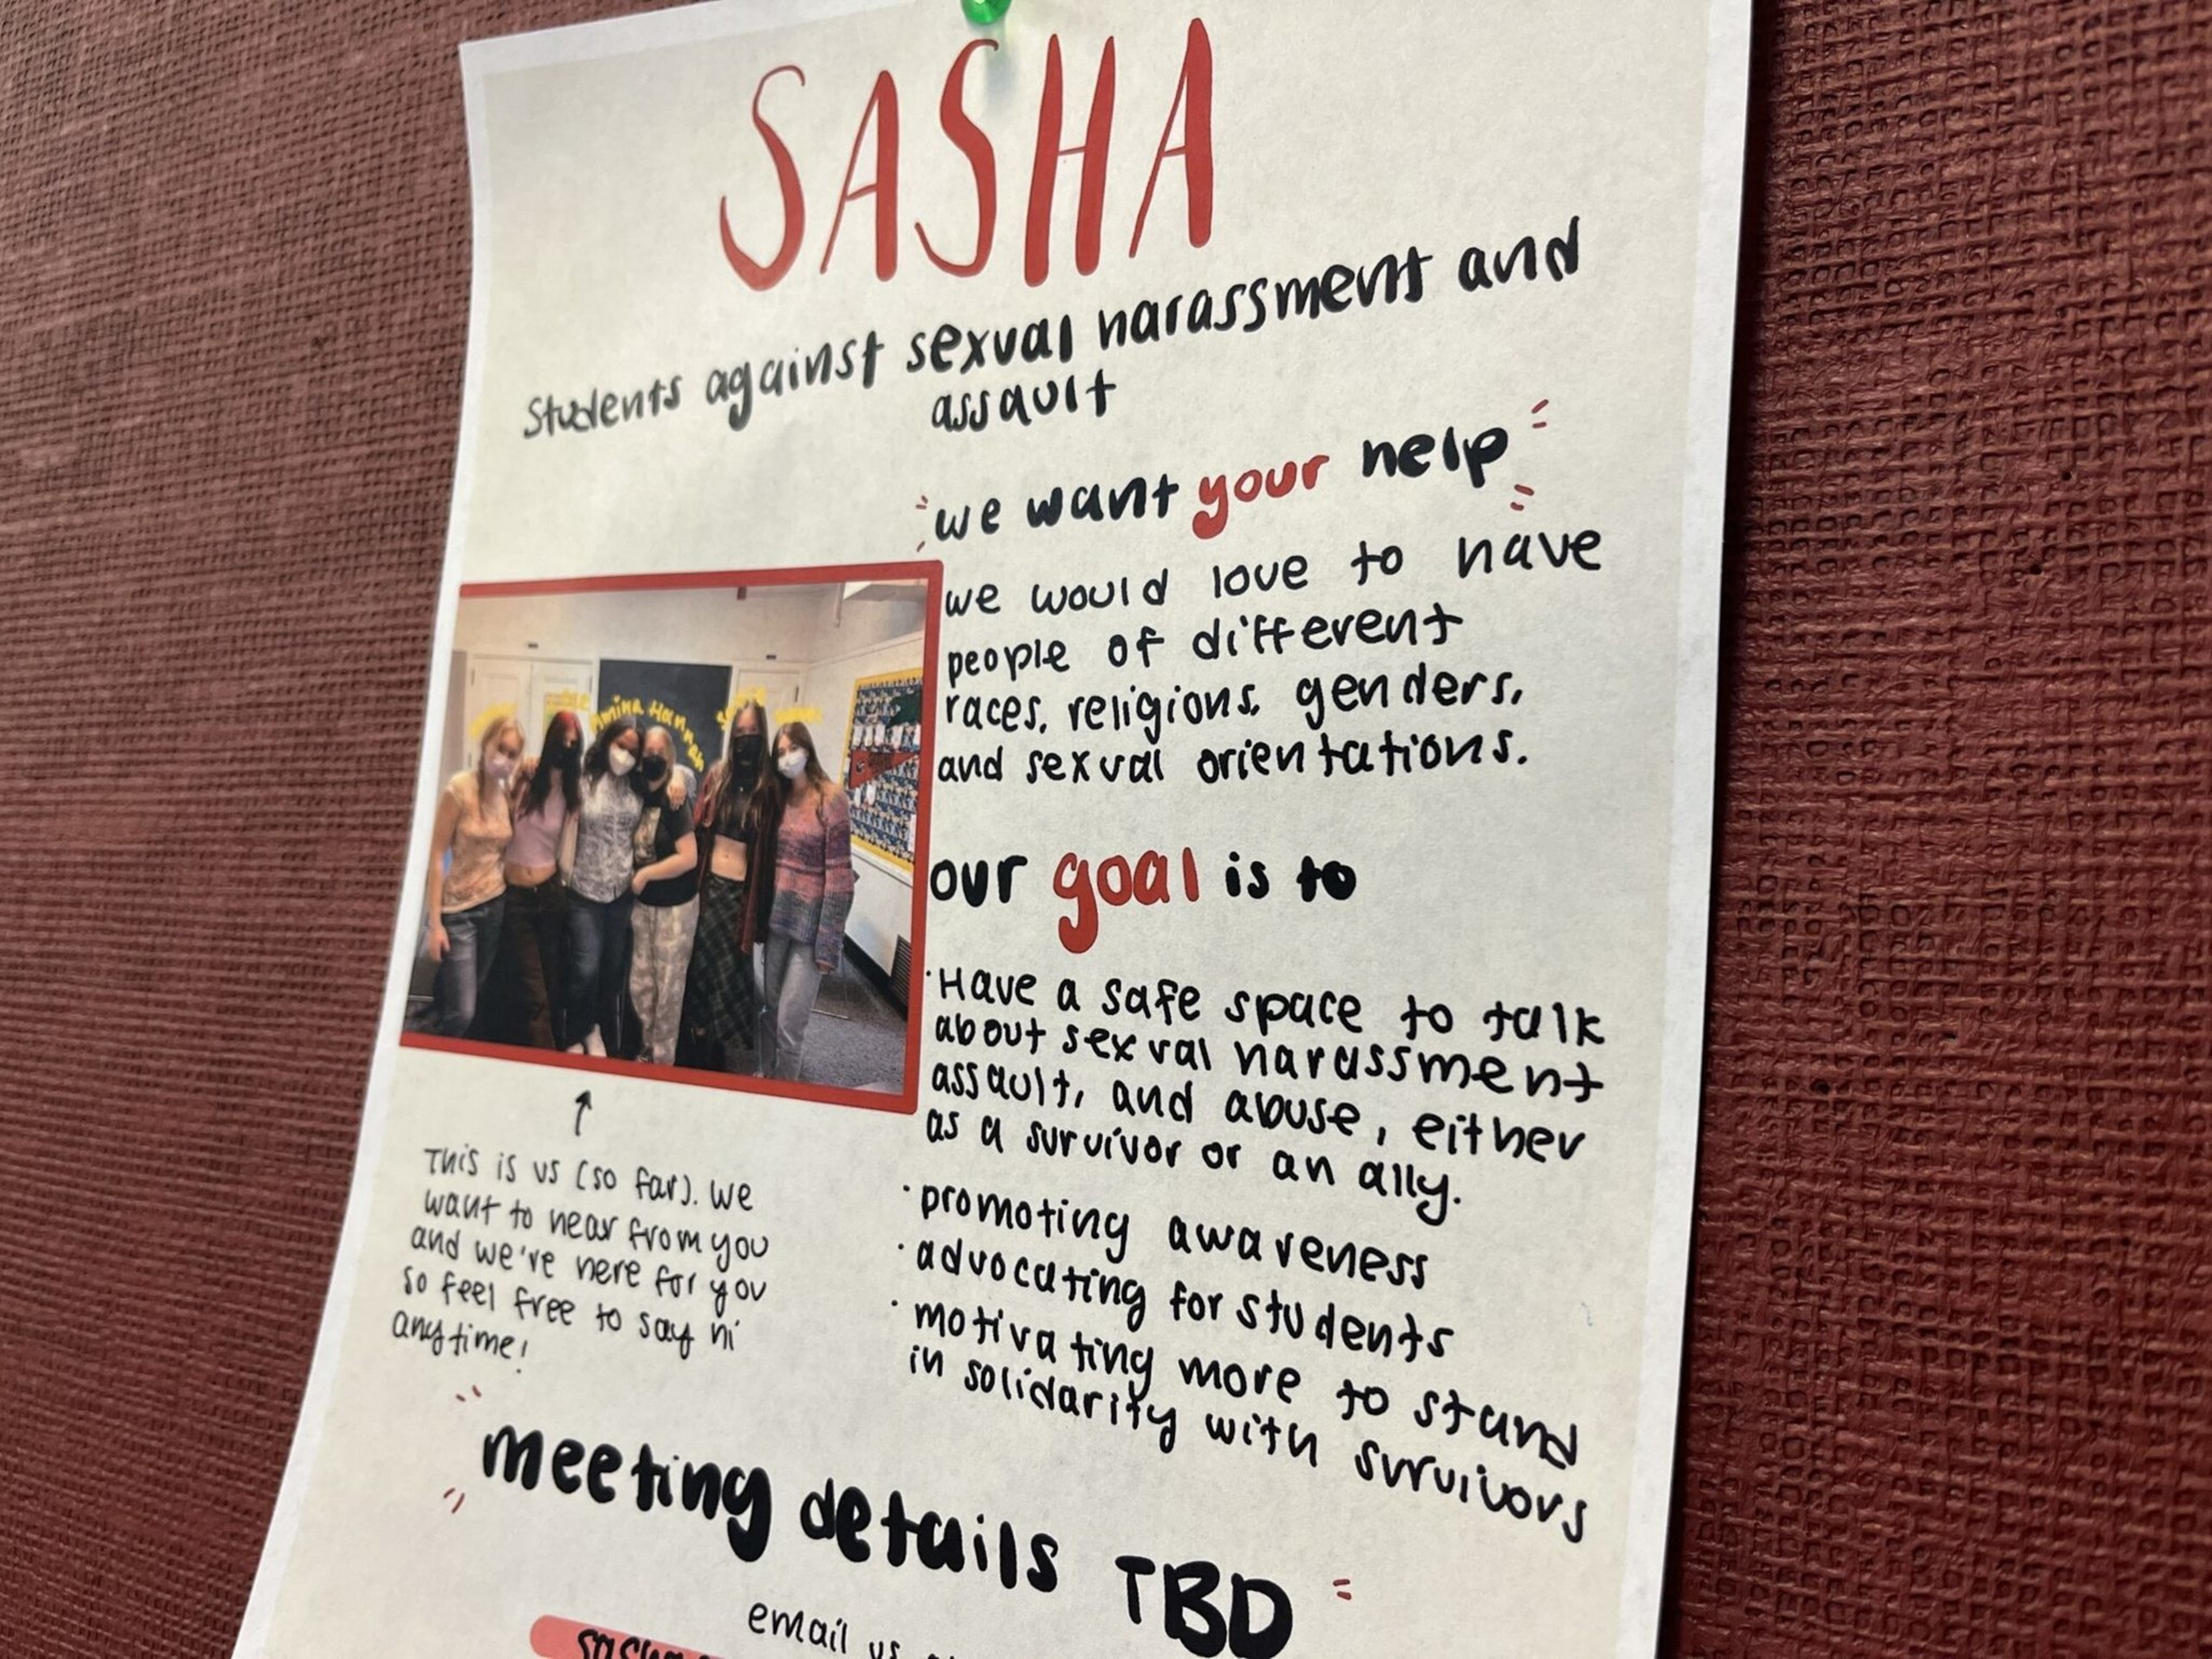 SASHA
Students against sexual harassment and
assault
we want your help
we would love to have
people of different
races, religions, genders,
and sexual orientations.
Amina Hannah
our goal is to
·Have a safe space to talk
about sexual harassment
assault, and abuse, either
as a survivor or an ally.
·promoting awareness
·advocating for students
·motivating more to stand
in solidarity with survivors
This is us (so far). We
want to hear from you
and we're here for you
so feel free to say hi
anytime!
meeting details TBD
email us